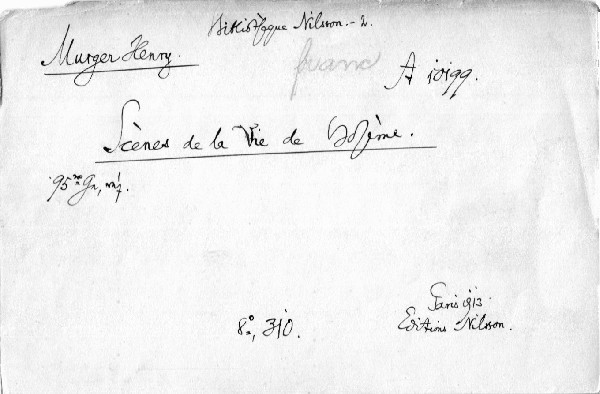 Bibliothèque Nilsson.-2.
Murger Henry.
franc
A 10199.
Scènes de la Vie de Bohème.
8°, 310.
Paris 1913.
Editions Nilsson.